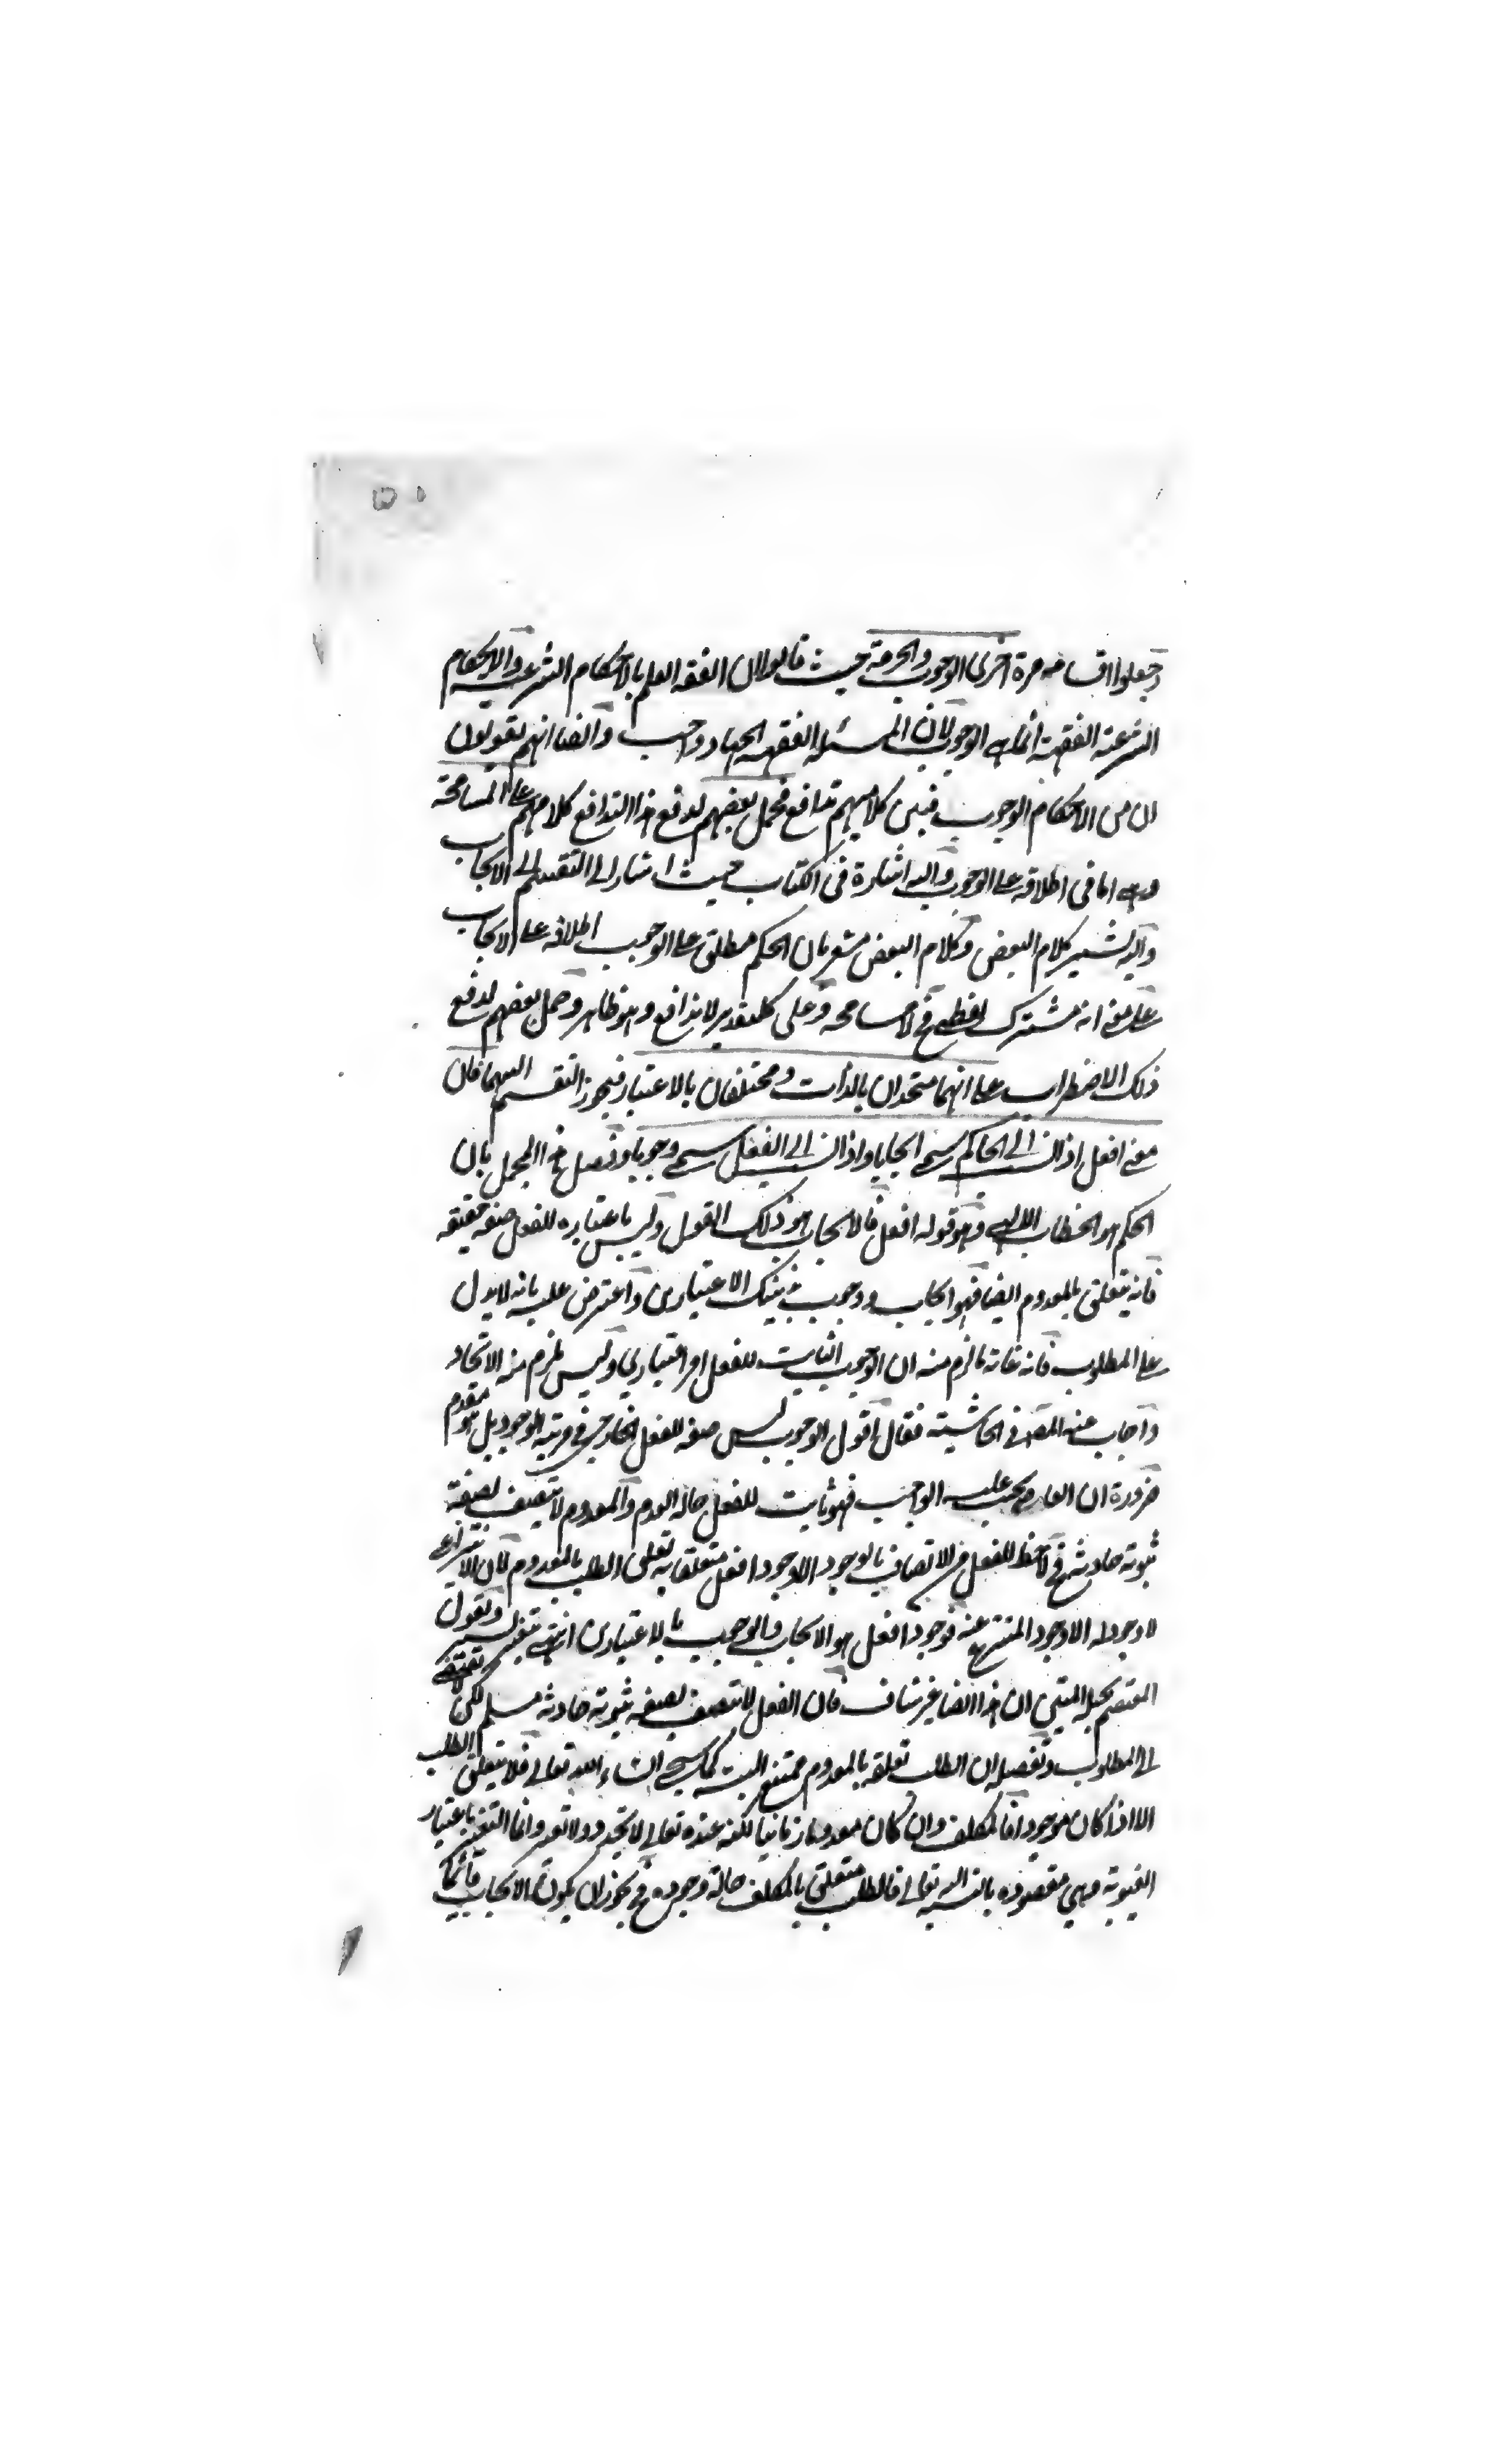 وجعلوا اقسامه مرة اخرى الوجوب والحرمة حيث قالوا ان الفقه العلم بالاحكام الشرعية والاحكام
الشرعية الفقهية انما هي الوجوب لان المسئلة الفقهية الجهاد واجب وايضا انهم يقولون
ان من الاحكام الوجوب فبين كلاميهم تدافع فحمل بعضهم لدفع هذا التدافع كلامهم على المسامحة
وهي اما في اطلاقه على الوجوب واليه اشارة في الكتاب حيث اشار الى التقسيم الى الايجاب
واليه يشير كلام البعض وكلام البعض مشعر بان الحكم مطلق على الوجوب اطلاقه على الايجاب
على معنى انه مشترك لفظي فح لا مسامحة وعلى كل تقدير لا تدافع وهو ظاهر وحمل بعضهم لدفع
ذلك الاضطراب على انهما متحدان بالذات ومختلفان بالاعتبار فيجوز التقسيم اليهما فان
معنى افعل اذا نسب الى الحاكم يسمى ايجابا واذا نسب الى الفعل يسمى وجوبا وتفصيل هذا المجمل بان
الحكم هو الخطاب الالهي وهو قوله افعل فالايجاب هو ذلك القول وليس باعتباره للفعل صفة حقيقية
فانه يتعلق بالمعدوم ايضا فهو ايجاب ووجوب بذينك الاعتبارين واعترض عليه بانه لا يدل
على المطلوب فانه غاية ما لزم منه ان الوجوب الثابت للفعل امر اعتباري وليس يلزم منه الاتحاد
واجاب عنه المصـ في الحاشية فقال اقول الوجوب ليس صفة للفعل الخارجي في مرتبة الوجود بل هو مقدم
ضرورة ان العارض يجب عليه الواجب فهو ثابت للفعل حالة العدم والمعدوم لا يتصف بصفة
ثبوتية حادثة فح لا حظ للفعل من الاتصاف بالوجوب الا وجود افعل متعلقا به تعلق الطلب بالمعدوم لان الانتزاعي
لا وجود له الا وجود المنتزع عنه فوجود افعل هو الايجاب والوجوب بالاعتبارين انتهى بتغيير يسير ويقول
المعتصم بحبله المتين ان هذا ايضا غير شاف فان الفعل لا يتصف بصفة ثبوتية حادثة مسلم لكن لا يفضي
الى المطلوب وتفصيله ان الطلب تعلقه بالمعدوم ممتنع البتة كما سيجيء ان شاء الله تعالى فلا يتعلق الطلب
الا اذا كان موجودا فالمكلف وان كان معدوما زمانيا لكنه عنده تعالى لا تجدد ولا تعدد وانما التغير باعتبار
الغيبوبة وهي مفقودة بالنسبة اليه تعالى فالطلب متعلق بالمكلف حالة وجوده فح يجوز ان يكون الايجاب قائما